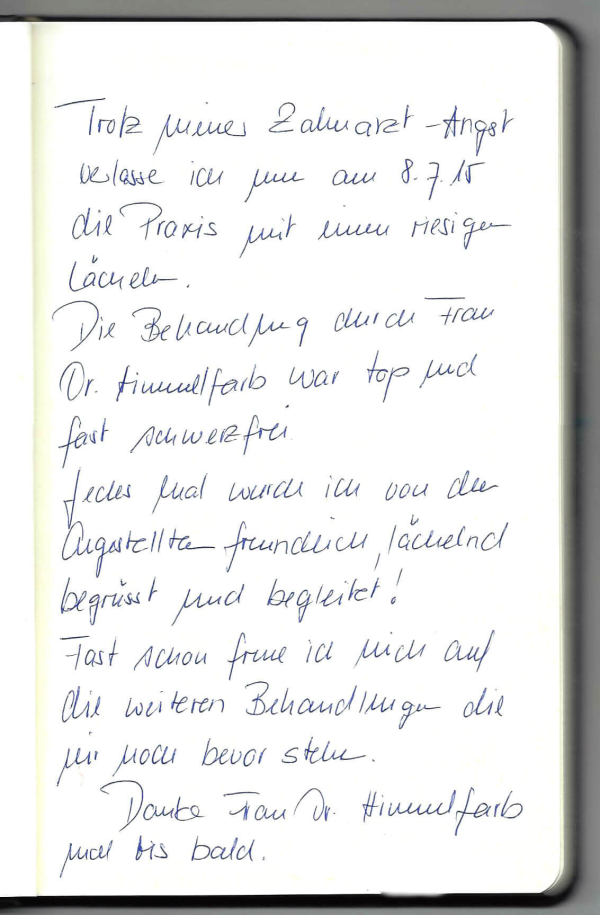 Trotz meiner Zahnarzt-Angst
verlasse ich nun am 8.7.15
die Praxis mit einem riesigen
Lächeln.
Die Behandlung durch Frau
Dr. Himmelfarb war top und
fast schmerzfrei.
Jedes Mal wurde ich von den
Angestellten freundlich, lächelnd
begrüsst und begleitet!
Fast schon freue ich mich auf
die weiteren Behandlungen die
mir noch bevor stehen.
Danke Frau Dr. Himmelfarb
und bis bald.